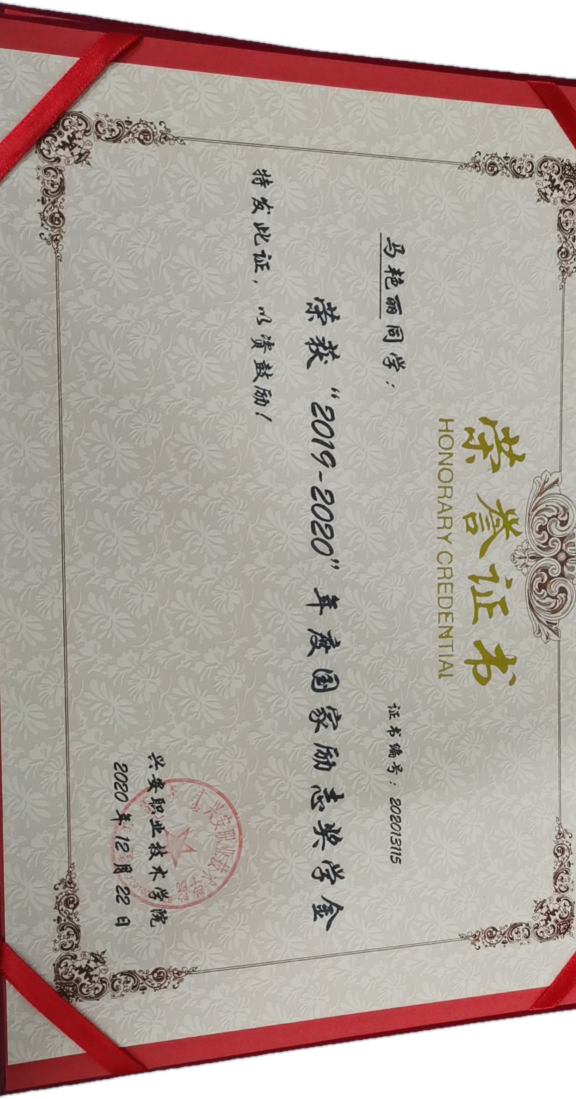 荣誉证书
HONORARY CREDENTIAL
证书编号：202013115
马艳丽同学：
荣获“2019-2020”年度国家励志奖学金
特发此证，以资鼓励！
兴安职业技术学院
2020年12月22日